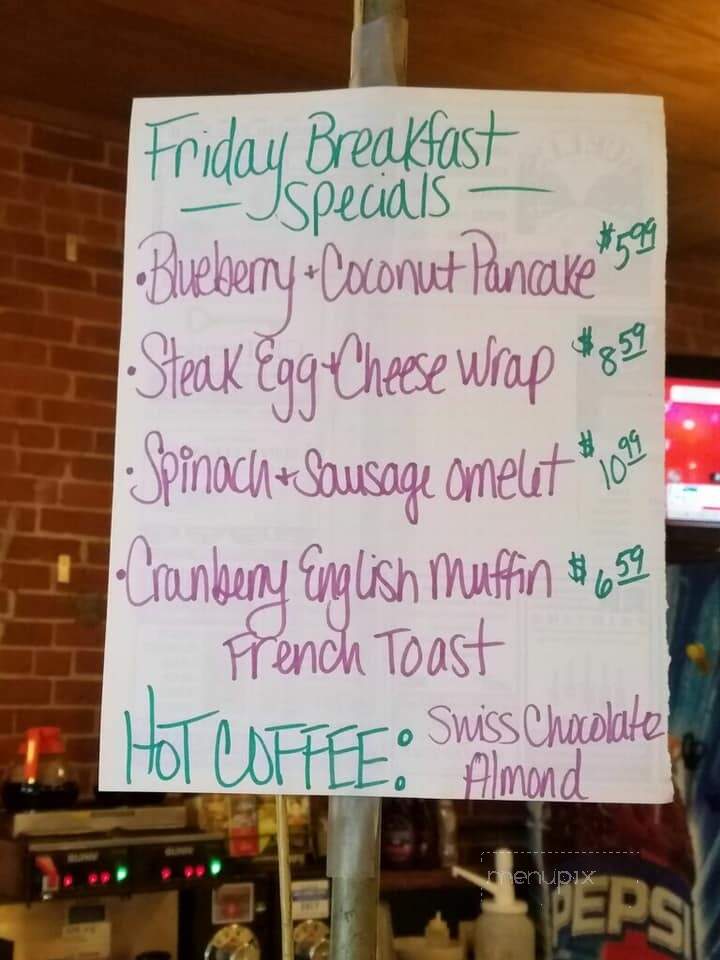 Friday Breakfast
— Specials —
• Blueberry + Coconut Pancake $5.99
• Steak Egg + Cheese Wrap $8.59
• Spinach + Sausage omelet $10.99
• Cranberry English Muffin $6.59
French Toast
HOT COFFEE: Swiss Chocolate
Almond
menupix
PEPSI